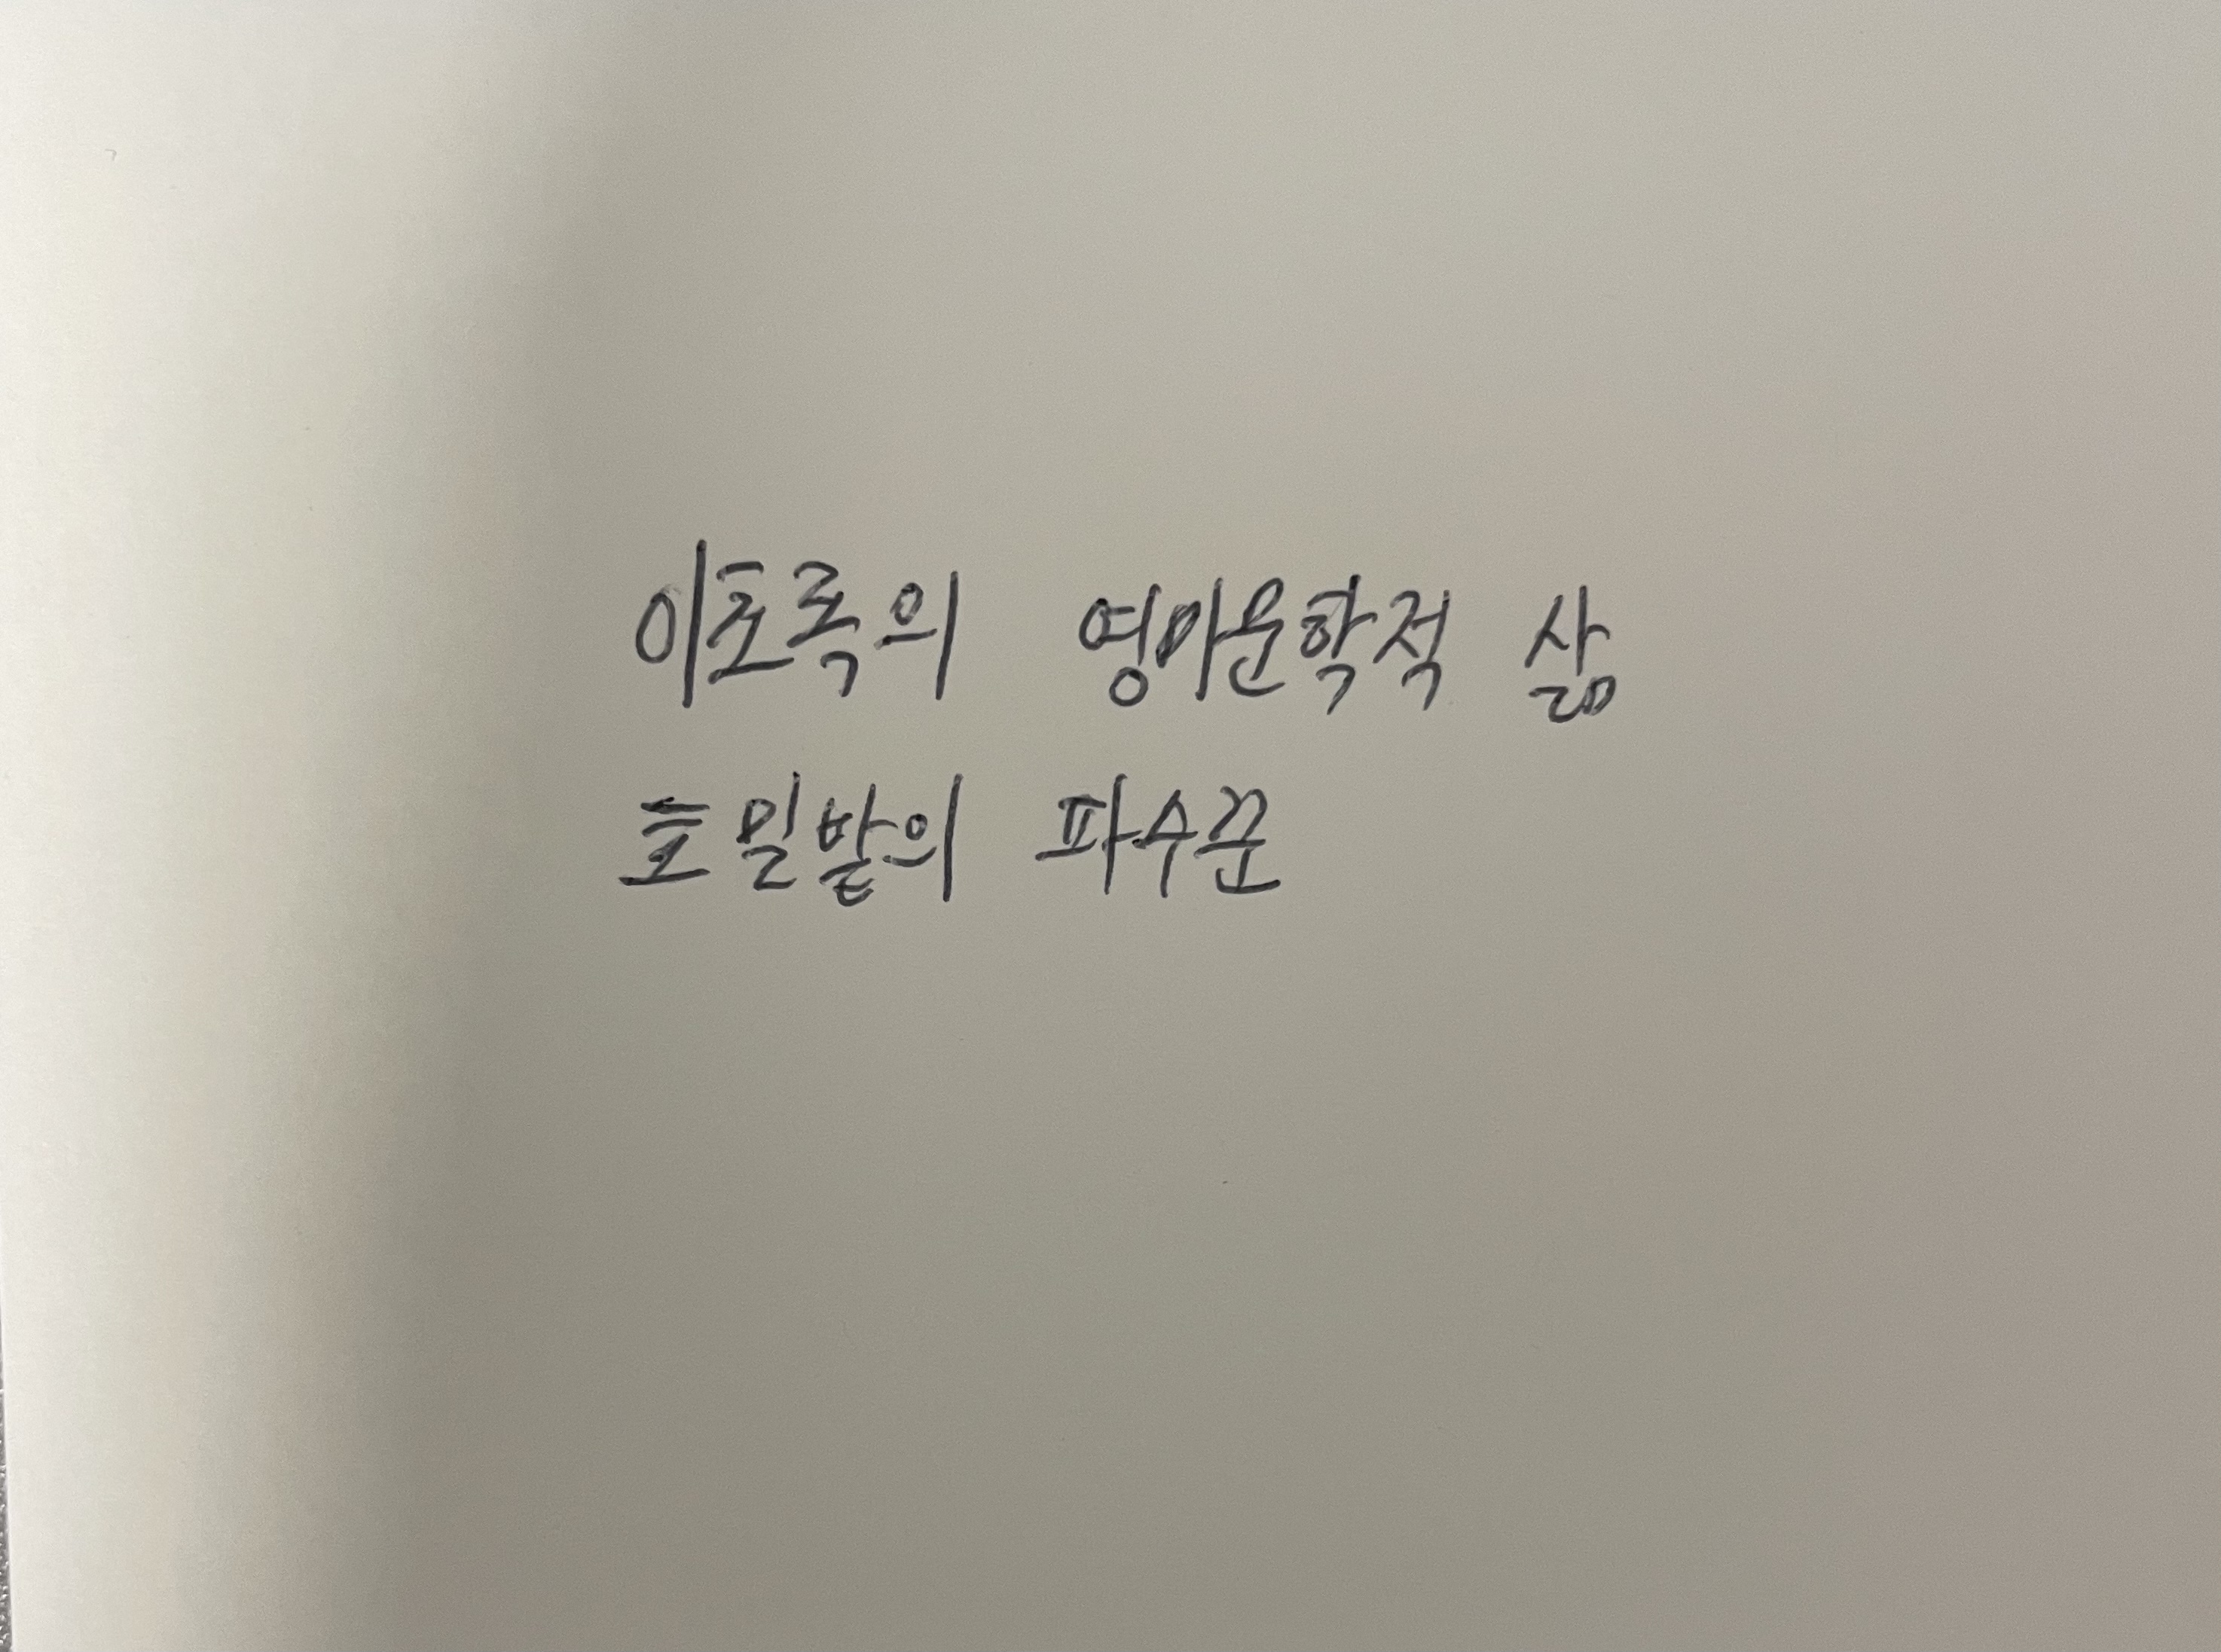 이토록의 영마운학적 삶
호밀밭의 파수꾼